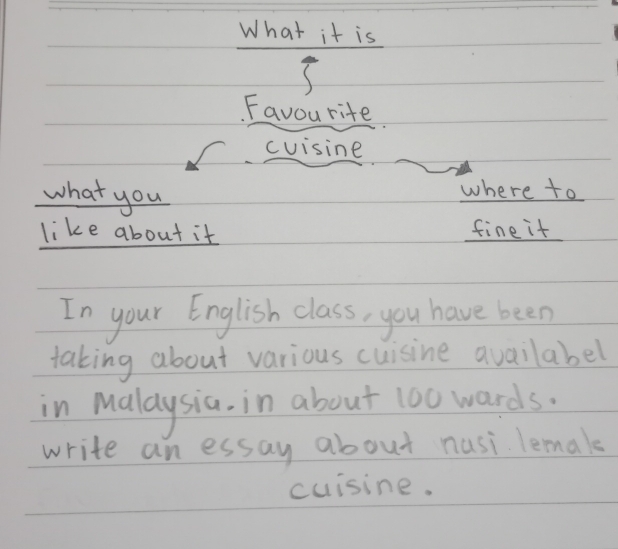 What it is
Favourite
cuisine
what you
like about it
where to
fine it
In your English class, you have been
taking about various cuisine availabel
in Malaysia. in about 100 wards.
write an essay about nasi lemak
cuisine.